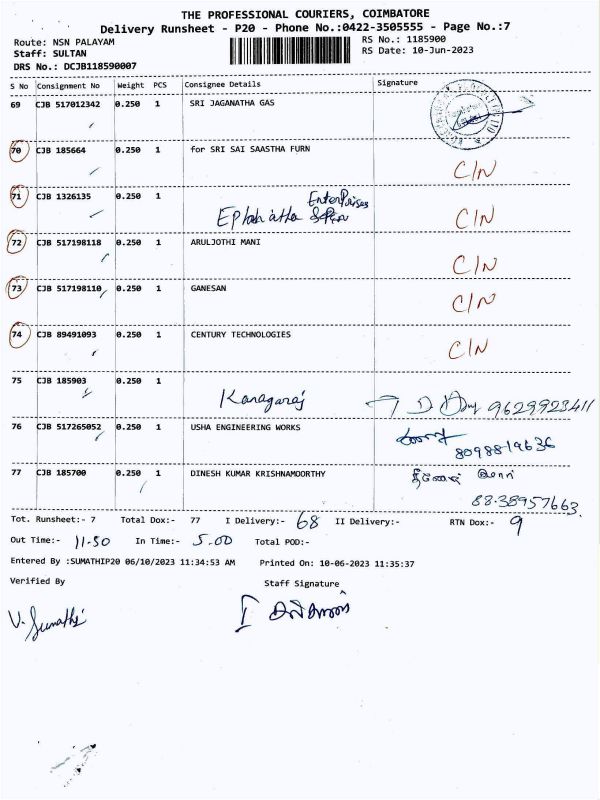 THE PROFESSIONAL COURIERS, COIMBATORE
Delivery Runsheet - P20 - Phone No.:0422-3505555 - Page No.:7
Route: NSN PALAYAM
RS No.: 1185900
Staff: SULTAN
RS Date: 10-Jun-2023
DRS No.: DCJB118590007
S No Consignment No Weight PCS Consignee Details Signature
69 CJB 517012342 0.250 1 SRI JAGANATHA GAS
70 CJB 185664 0.250 1 for SRI SAI SAASTHA FURN C/N
71 CJB 1326135 0.250 1 Enterprises C/N
72 CJB 517198118 0.250 1 ARULJOTHI MANI C/N
73 CJB 517198110 0.250 1 GANESAN C/N
74 CJB 89491093 0.250 1 CENTURY TECHNOLOGIES C/N
75 CJB 185903 0.250 1 Kanagaraj 9629923411
76 CJB 517265052 0.250 1 USHA ENGINEERING WORKS 8098819636
77 CJB 185700 0.250 1 DINESH KUMAR KRISHNAMOORTHY
88-38957663
Tot. Runsheet:- 7 Total Dox:- 77 I Delivery:- 68 II Delivery:- RTN Dox:- 9
Out Time:- 11.50 In Time:- 5.00 Total POD:-
Entered By :SUMATHIP20 06/10/2023 11:34:53 AM Printed On: 10-06-2023 11:35:37
Verified By Staff Signature
V. Sumathi